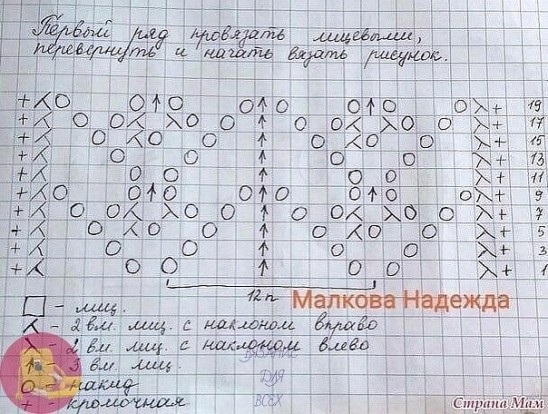 Первый ряд провязать лицевыми,
перевернуть и начать вязать рисунок.
19
17
15
13
11
9
7
5
3
1
12п
Малкова Надежда
□ - лиц.
⅄ - 2 вм. лиц. с наклоном вправо
λ - 2 вм. лиц. с наклоном влево
↑ - 3 вм. лиц.
О - накид
+ - кромочная
ВЯЗАНИЕ
ДЛЯ
ВСЕХ
Страна Мам